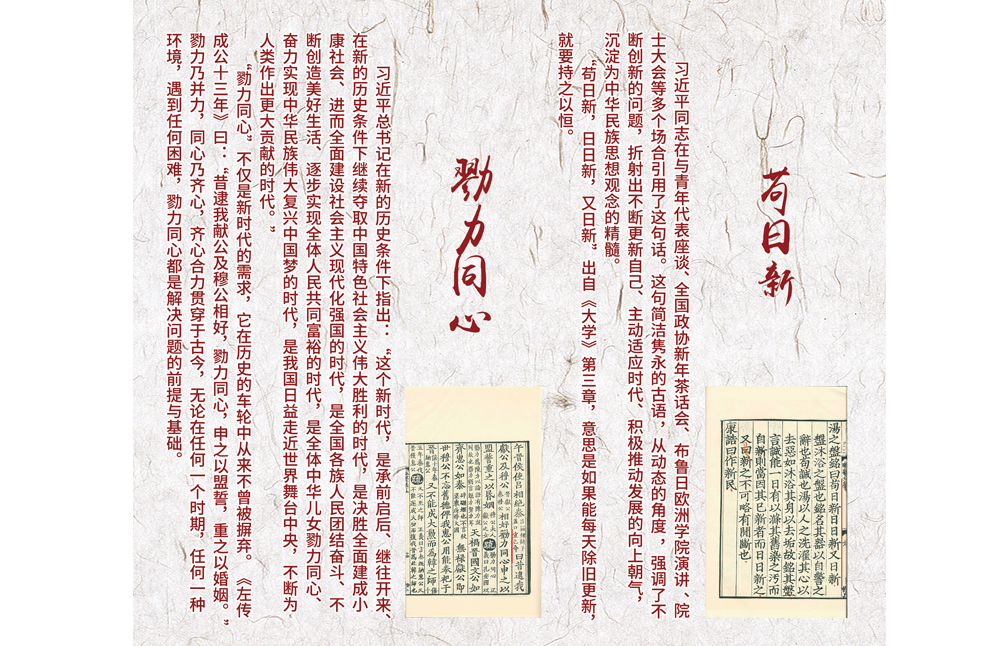 苟日新
习近平同志在与青年代表座谈、全国政协新年茶话会、布鲁日欧洲学院演讲、院
士大会等多个场合引用了这句话。这句简洁隽永的古语，从动态的角度，强调了不
断创新的问题，折射出不断更新自己、主动适应时代、积极推动发展的向上朝气，
沉淀为中华民族思想观念的精髓。
“苟日新，日日新，又日新”出自《大学》第三章，意思是如果能每天除旧更新，
就要持之以恒。
湯之盤銘曰苟日新日日新又日新
盤沐浴之盤也銘名其器以自警之
辭也苟誠也湯以人之洗濯其心以
去惡如沐浴其身以去垢故銘其盤
言誠能一日有以滌其舊染之污而
自新則當因其已新者而日日新之
又日新之不可略有間斷也
康誥曰作新民
勠力同心
习近平总书记在新的历史条件下指出：“这个新时代，是承前启后、继往开来、
在新的历史条件下继续夺取中国特色社会主义伟大胜利的时代，是决胜全面建成小
康社会、进而全面建设社会主义现代化强国的时代，是全国各族人民团结奋斗、不
断创造美好生活、逐步实现全体人民共同富裕的时代，是全体中华儿女勠力同心、
奋力实现中华民族伟大复兴中国梦的时代，是我国日益走近世界舞台中央，不断为
人类作出更大贡献的时代。”
“勠力同心”不仅是新时代的需求，它在历史的车轮中从来不曾被摒弃。《左传
成公十三年》曰：“昔逮我献公及穆公相好，勠力同心，申之以盟誓，重之以婚姻。”
勠力乃并力，同心乃齐心，齐心合力贯穿于古今，无论在任何一个时期，任何一种
环境，遇到任何困难，勠力同心都是解决问题的前提与基础。